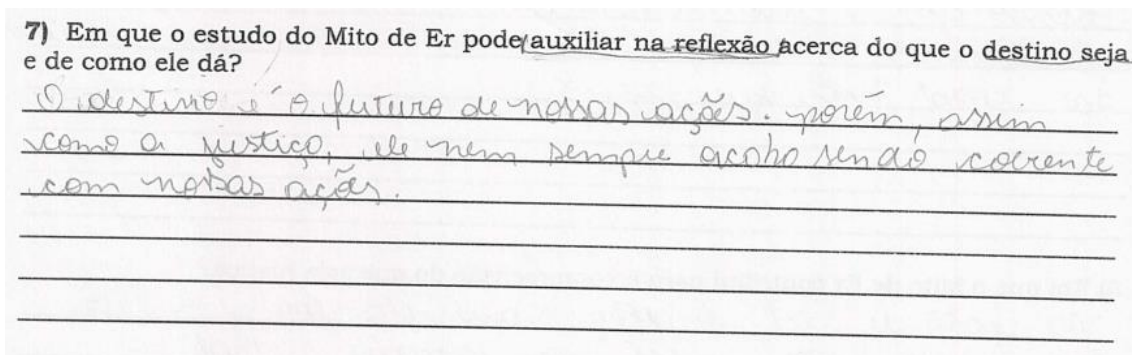 7) Em que o estudo do Mito de Er pode auxiliar na reflexão acerca do que o destino seja
e de como ele dá?
O destino é o futuro de nossas ações. porém, assim
como a justiça, ele nem sempre acaba sendo coerente
com nossas ações.